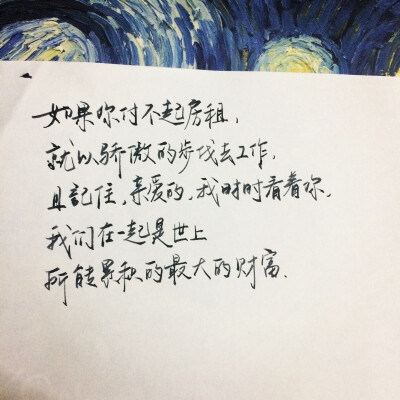 如果你付不起房租，
就以骄傲的步伐去工作，
且記住，亲爱的，我时时看着你，
我们在一起是世上
所能累积的最大的财富.